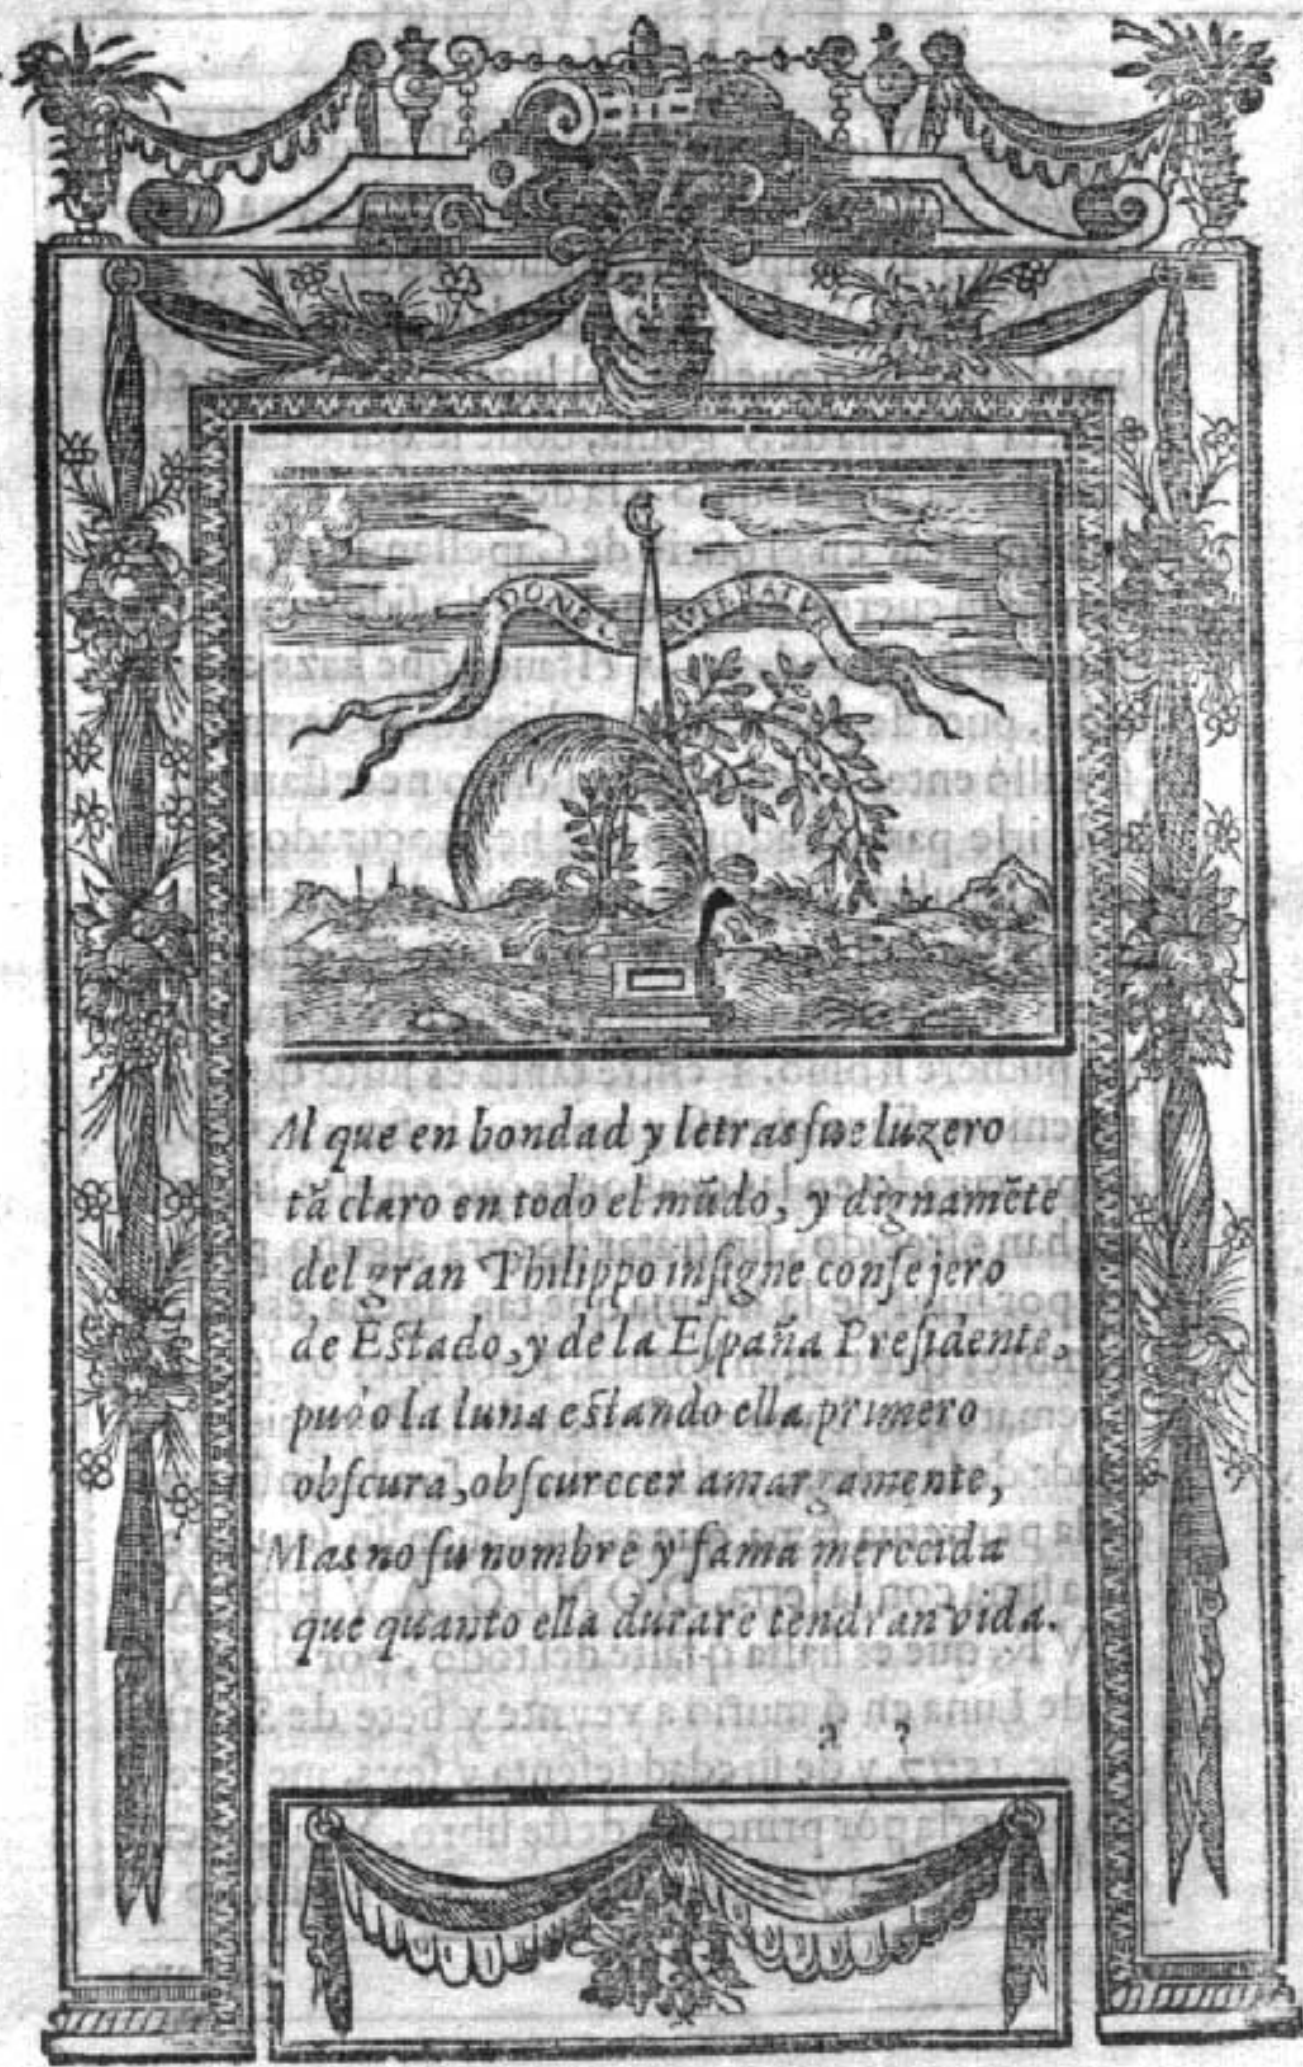 DONEC AVFERATVR
Al que en bondad y letras fue luzero
tã claro en todo el mũdo, y dignamẽte
del gran Philippo inſigne conſejero
de Eſtado, y de la Eſpaña Preſidente,
pudo la luna eſtando ella primero
obſcura, obſcurecer amargamente,
Mas no ſu nombre y fama merecida
que quanto ella durare tendran vida.